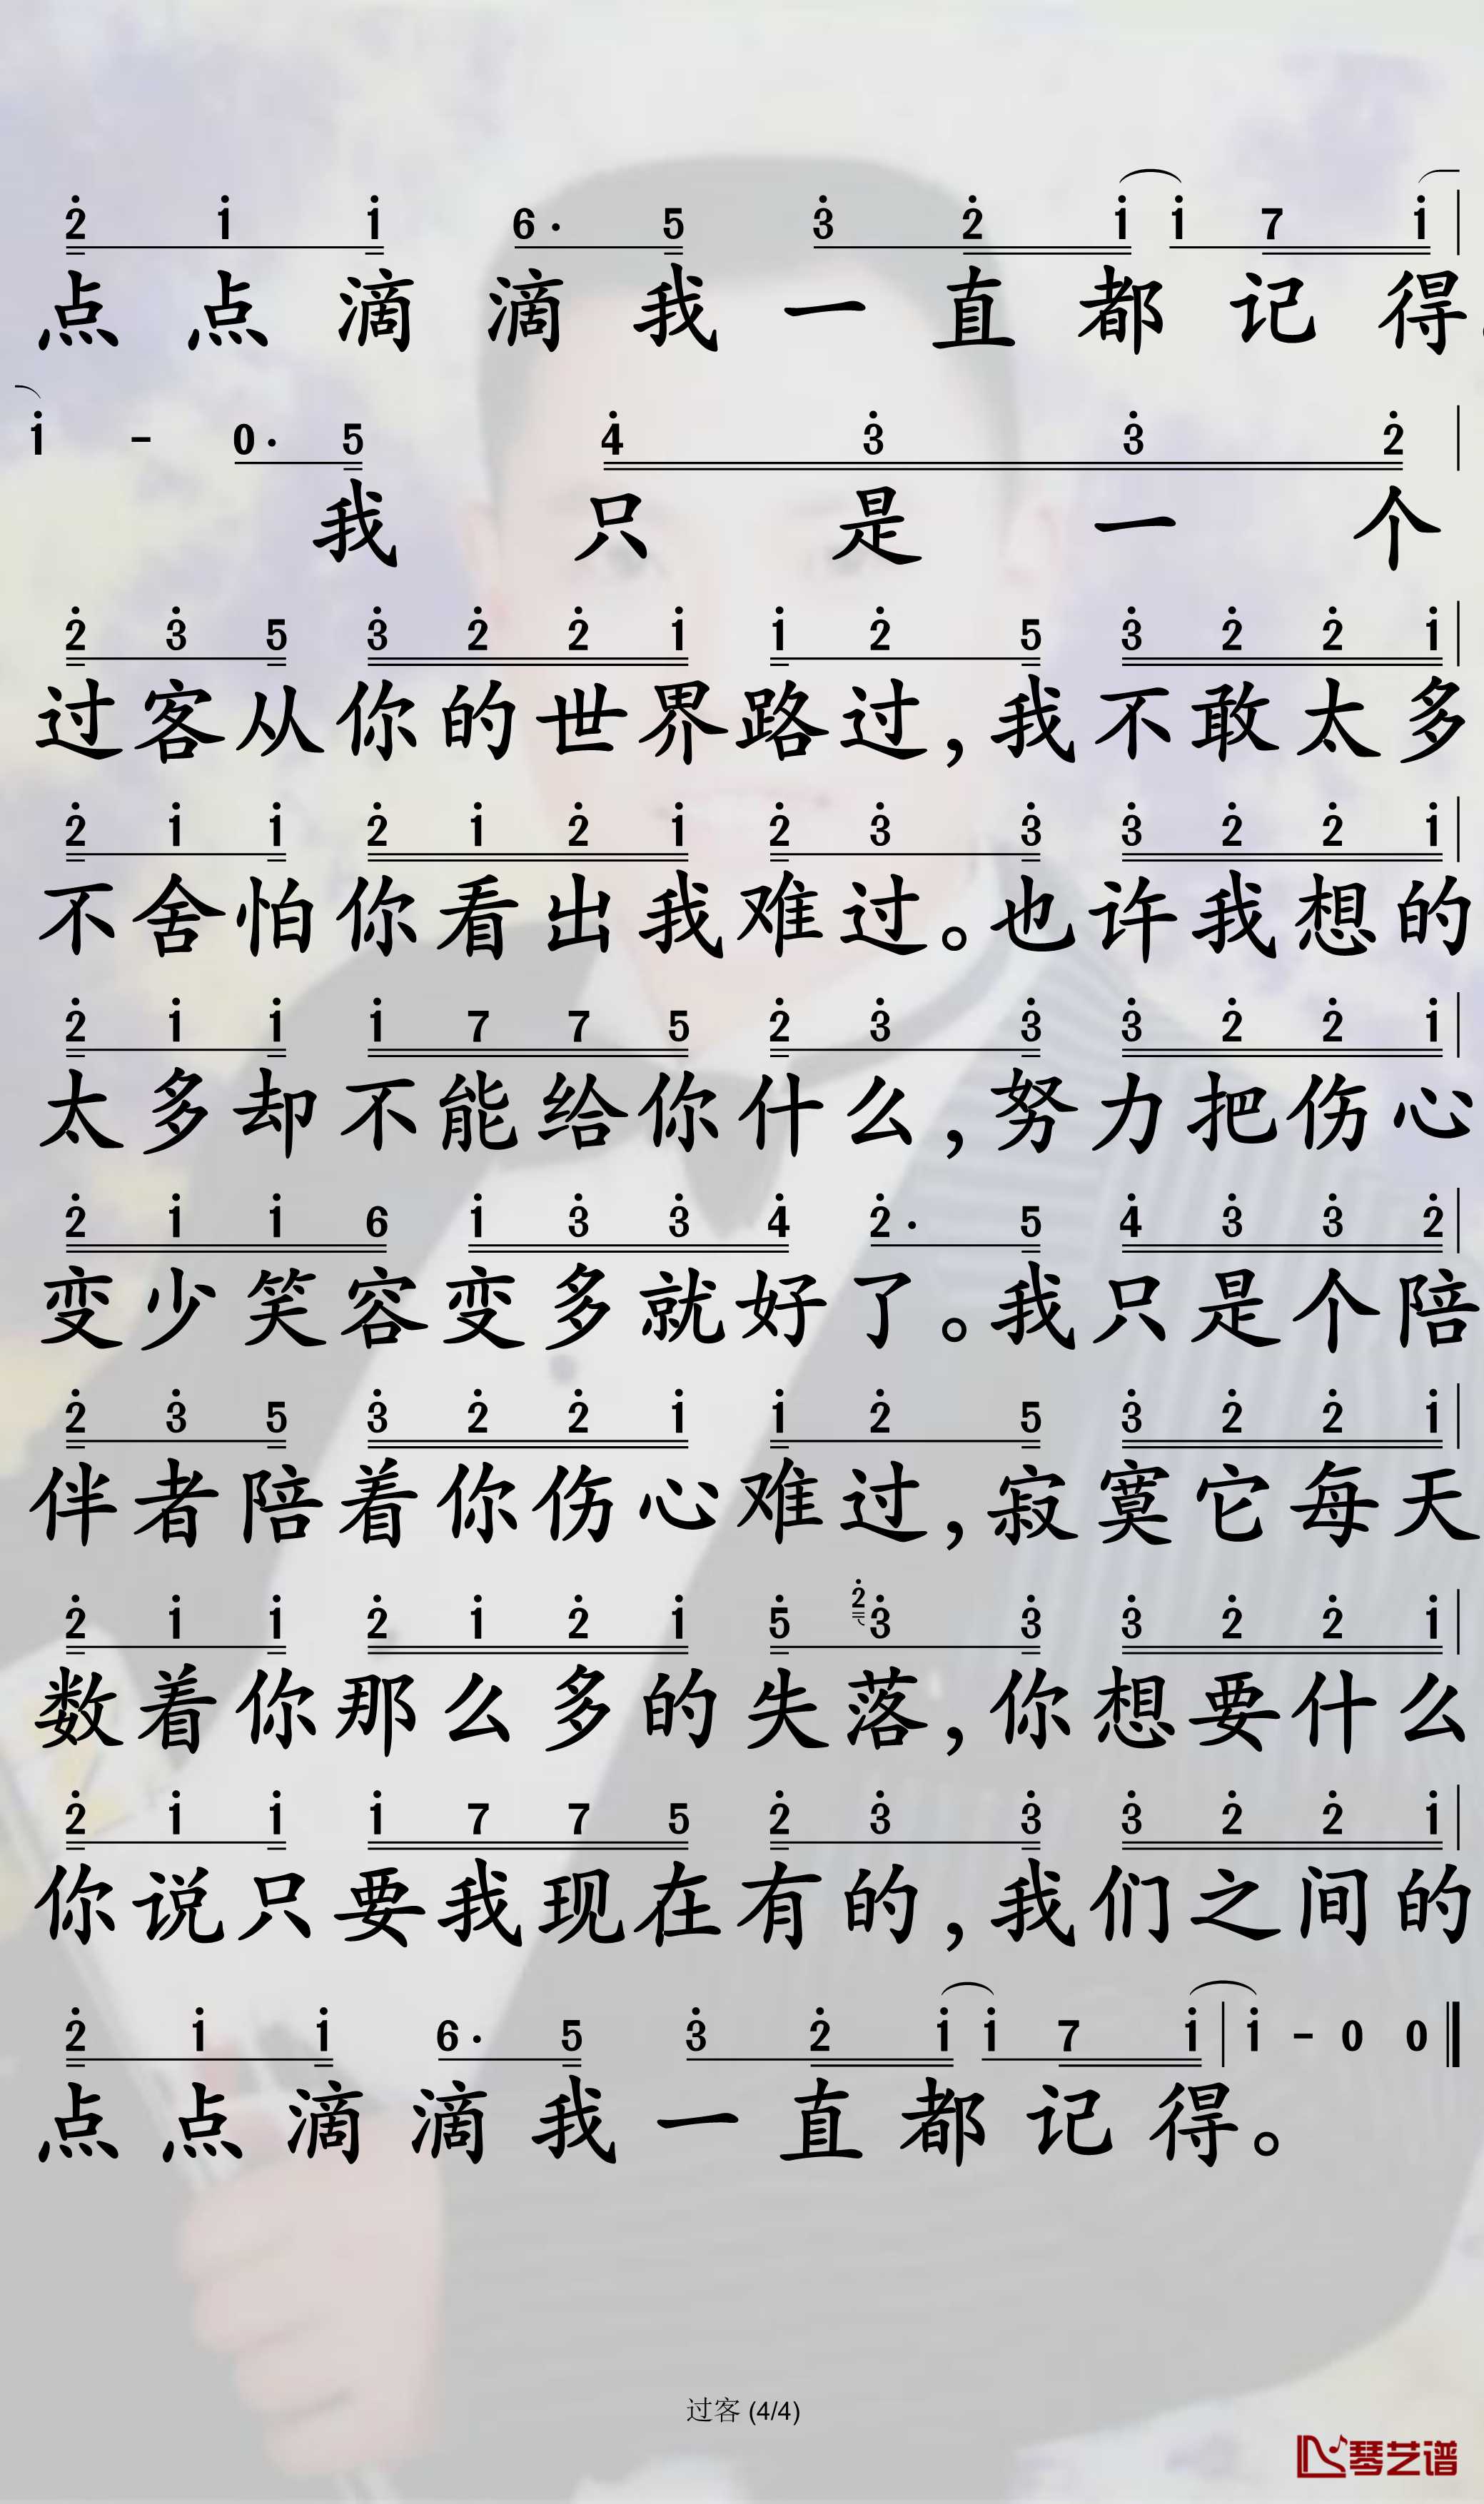 2̇ 1̇ 1̇ 6· 5 3̇ 2̇ 1̇ 1̇ 7 1̇ |
点点滴滴我一直都记得
1̇ - 0· 5 4̇ 3̇ 3̇ 2̇ |
我只是一个
2̇ 3̇ 5 3̇ 2̇ 2̇ 1̇ 1̇ 2̇ 5 3̇ 2̇ 2̇ 1̇ |
过客从你的世界路过,我不敢太多
2̇ 1̇ 1̇ 2̇ 1̇ 2̇ 1̇ 2̇ 3̇ 3̇ 3̇ 2̇ 2̇ 1̇ |
不舍怕你看出我难过。也许我想的
2̇ 1̇ 1̇ 1̇ 7 7 5 2̇ 3̇ 3̇ 3̇ 2̇ 2̇ 1̇ |
太多却不能给你什么,努力把伤心
2̇ 1̇ 1̇ 6 1̇ 3̇ 3̇ 4̇ 2̇· 5 4̇ 3̇ 3̇ 2̇ |
变少笑容变多就好了。我只是个陪
2̇ 3̇ 5 3̇ 2̇ 2̇ 1̇ 1̇ 2̇ 5 3̇ 2̇ 2̇ 1̇ |
伴者陪着你伤心难过,寂寞它每天
2̇ 1̇ 1̇ 2̇ 1̇ 2̇ 1̇ 5̇ 2̇ 3̇ 3̇ 3̇ 2̇ 2̇ 1̇ |
数着你那么多的失落,你想要什么
2̇ 1̇ 1̇ 1̇ 7 7 5 2̇ 3̇ 3̇ 3̇ 2̇ 2̇ 1̇ |
你说只要我现在有的,我们之间的
2̇ 1̇ 1̇ 6· 5 3̇ 2̇ 1̇ 1̇ 7 1̇ | 1̇ - 0 0 ‖
点点滴滴我一直都记得。
过客 (4/4)
琴艺谱